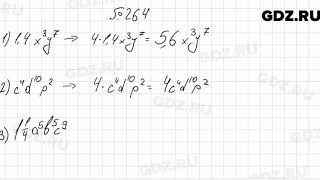 GDZ.RU
№264
1) 1,4 x³y⁷ → 4·1,4x³y⁷ = 5,6 x³y⁷
2) c⁴d¹⁰p² → 4·c⁴d¹⁰p² = 4c⁴d¹⁰p²
3) 1 1/4 a⁵b⁵c⁹